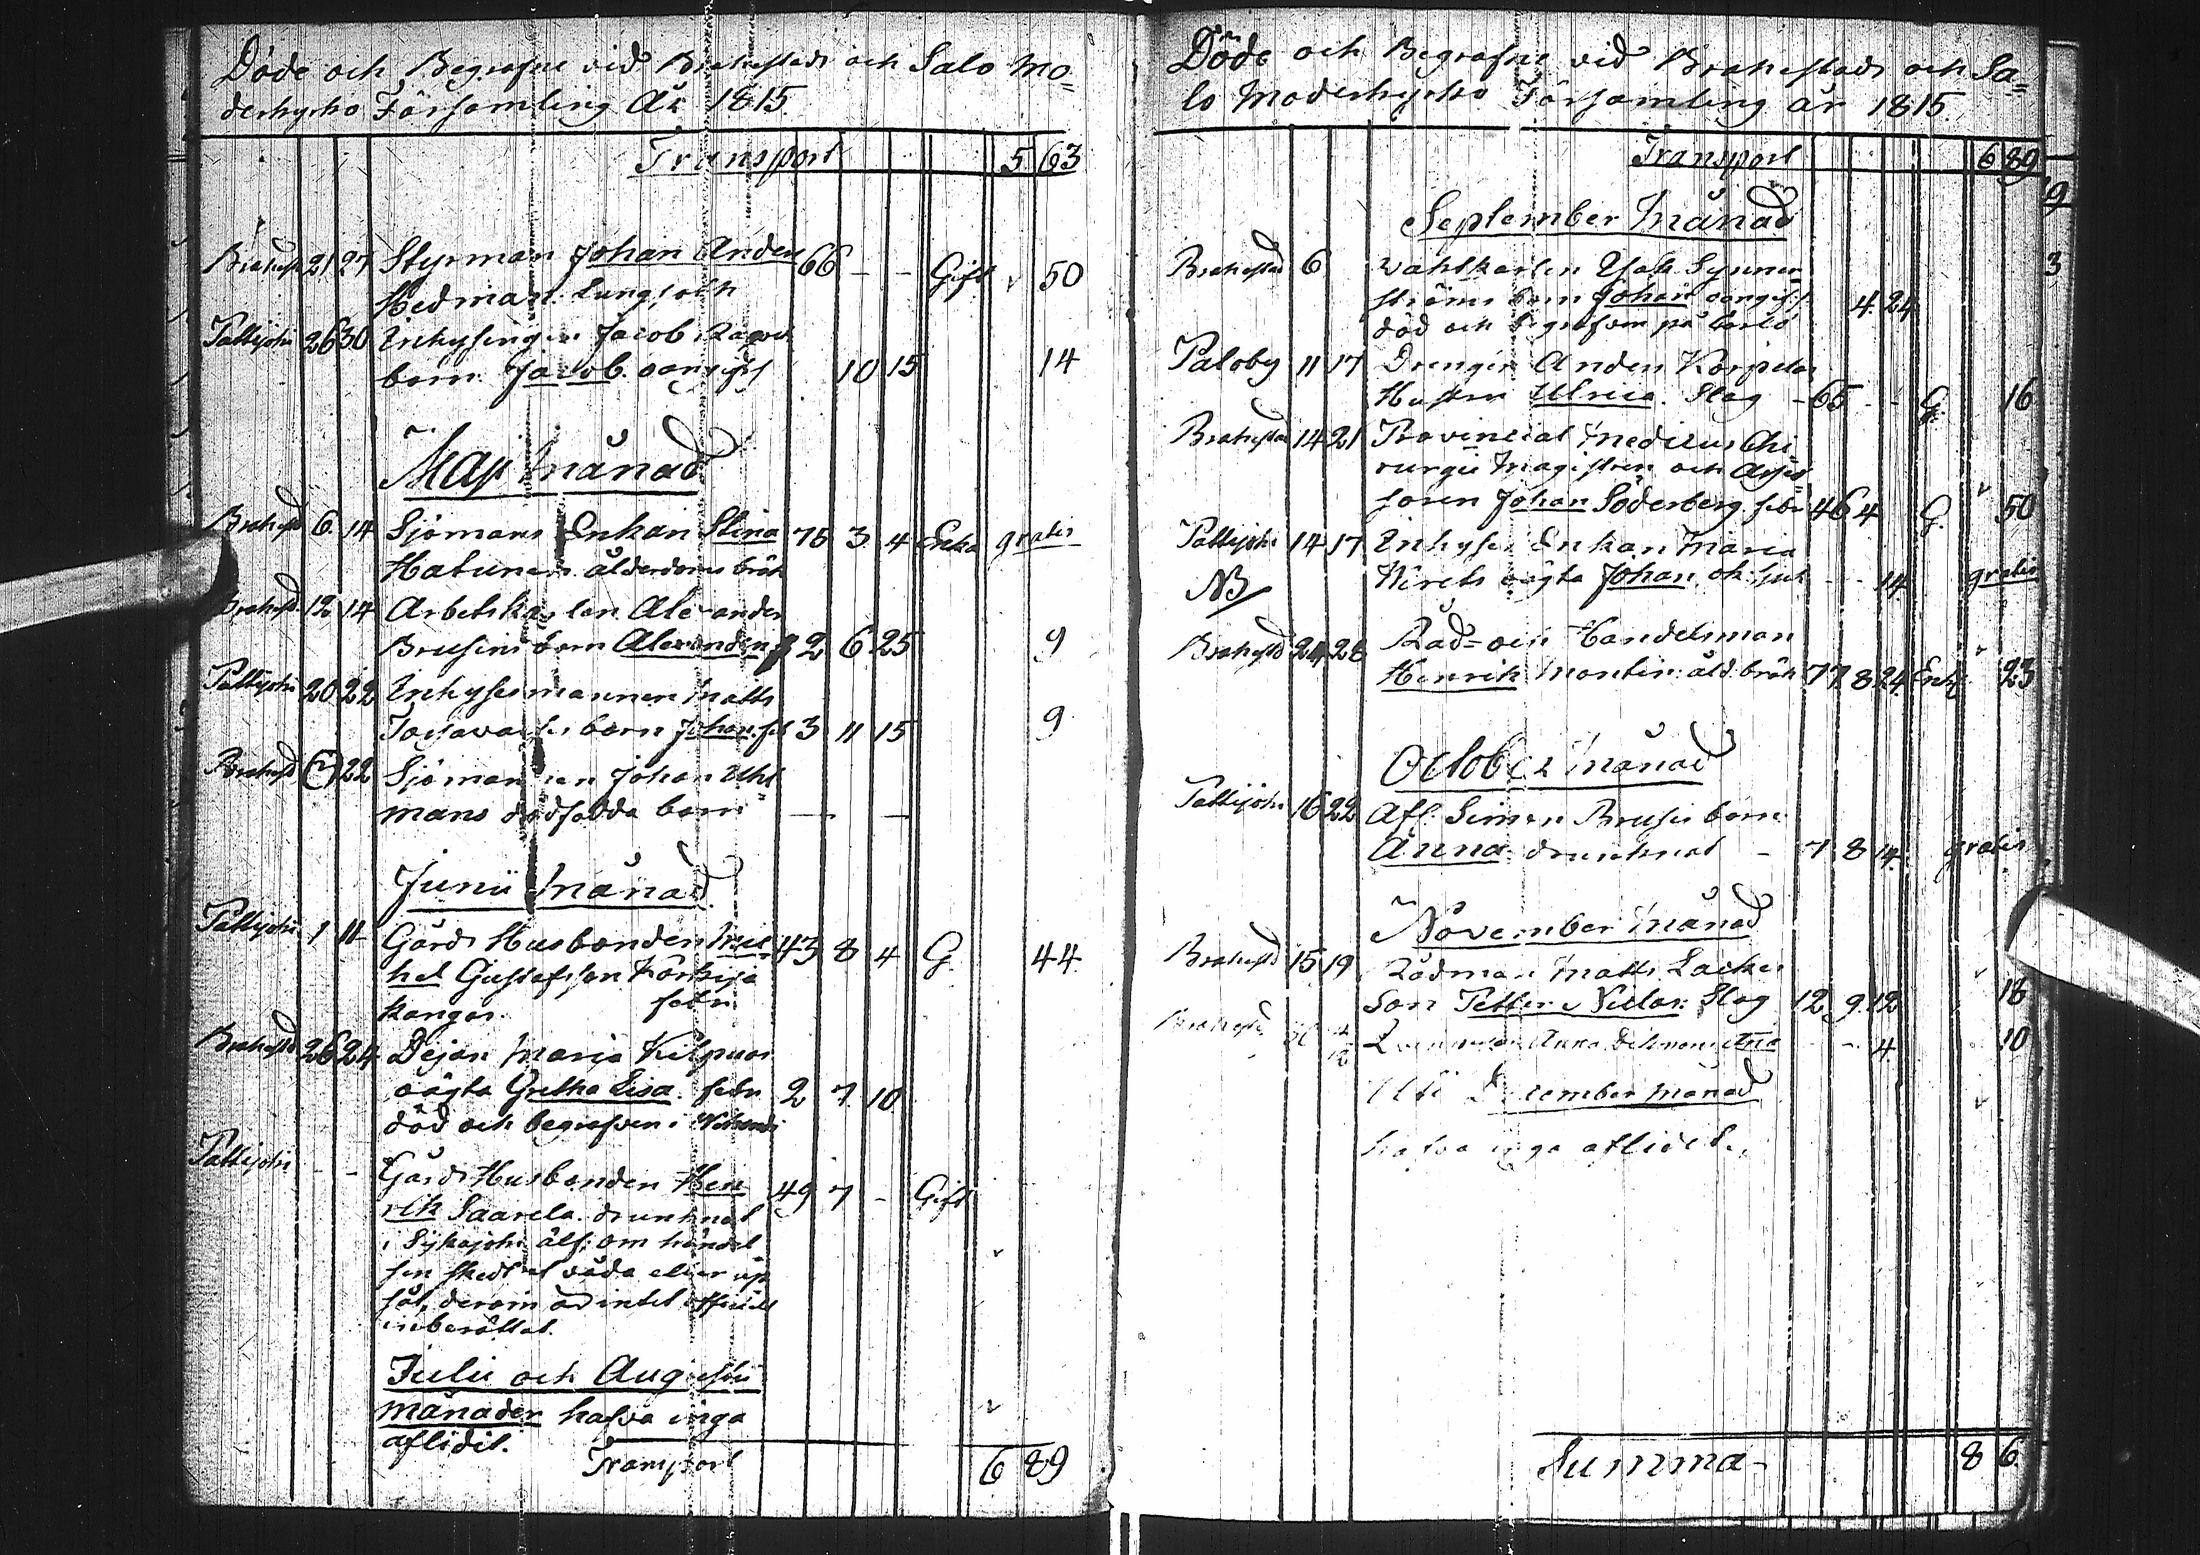 Döde och Begrafne vid Brahestads och Salo Mo=
derkyrko Församling År 1815.
Transport 5. 63
Brahestad 21 27 Styrman Johan Anders 66 - - Gift 50
Hedman. lungsoth
Pattijoki 26 30 Inhysingen Jacob
barn Jacob. oangifvit 10 15 14
Maji Månad
Brahestad 6. 14 Sjömans Enkan Stina 75 3 4 Enka gratis
Hatunen. ålderdoms bräk
Brahestad 12 14 Arbetskarlen Alexander
Brusins barn Alexander 2 6 25 9
Pattijoki 20 22 Inhyses mannen Matts
barn Johan 3 11 15 9
Brahestad 22 Sjömannen Johan Uhl=
mans dödfödda barn — —
Junii Månad.
Pattijoki 1 11 Gårds Husbonden Mic= 43 8 4 G. 44.
hel Gustafsson
kangas. feber
Brahestad 26 24 Pejan Maria Kilpuas
oägta Gretha Lisa. feber 2 7 10
död och begrafven i
Pattijoki - - Gårds Husbonden Hen= 49 7 - Gift
rik Saarela. drunknat
i Sijkajoki älf: om händel
sen skedt af våda eller up
såt, derom är intet
inberättat.
Julii och Augusti
månader hafva inga
aflidit.
Transport 6 89
Döde och Begrafne vid Brahestads och Sa=
lo Moderkyrko Församling år 1815.
Transport 6 89
September Månad
Brahestad 6 Wahlkarlen Isak Synner
ströms barn Johan oangifvit 4. 24
död och begrafven på Carlö
Paloby 11 17 Drengen Anders Korpelas
Hustru Ulrica. Slag - 65 - - G. 16
Brahestad 14 21 Provincial Medicus Chi=
rurgie Magistern och Asses=
soren Johan Söderberg feber 46 4 G. 50
Pattijoki 14 17 Inhyses Enkan Maria
NB oägta Johan, ok: sjuk - - 14. gratis
Brahestad 24 28 Råd- och Handelsman
Henrik Montin: åld: bräk 77. 8. 24 Enkl 23
October Månad
Pattijoki 16 22 Afl. Simon Brusis barn
Anna drunknat - 7 8 14. gratis
November Månad
Brahestad 15 19 Rådman Matts Lackes
Son Petter Niclas: Slag 12 9. 12 18
Brahestad Anna - - 4. 10
Uti December månad
hafva inga aflidit.
Summa - 8 6.
9
3